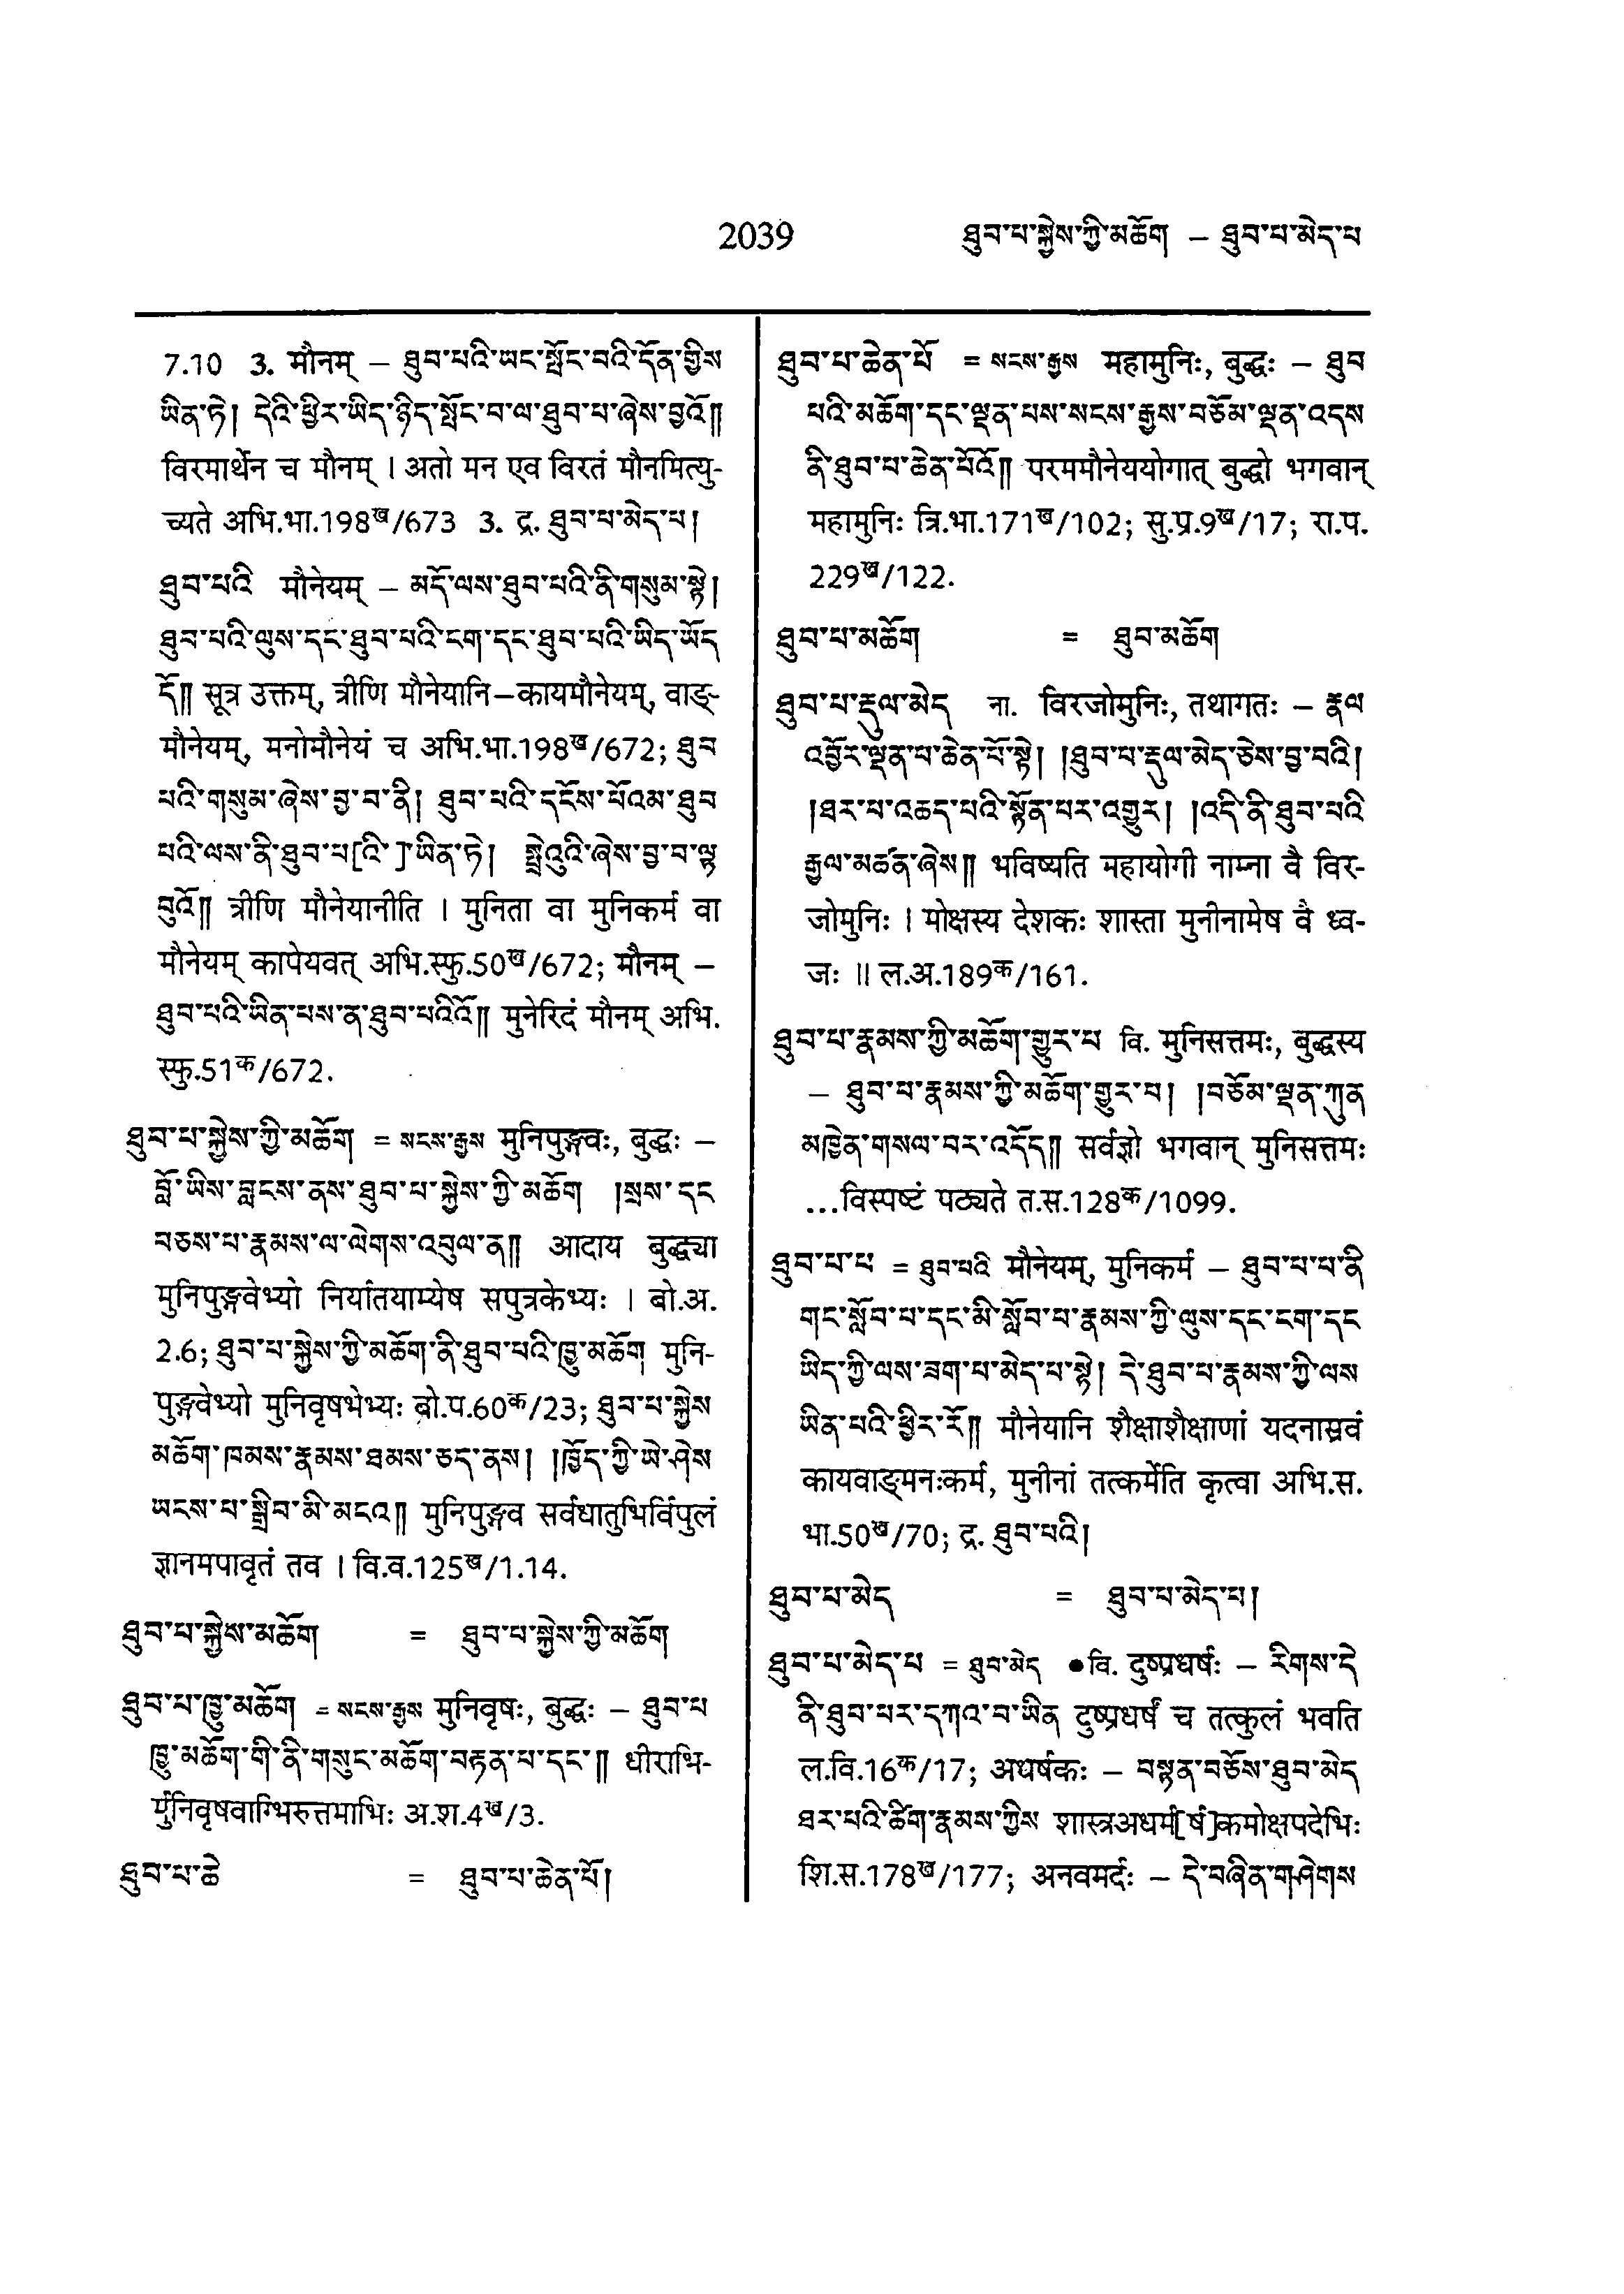 2039
ཐུབ་པ་སྐྱེས་ཀྱི་མཆོག – ཐུབ་པ་མེད་པ
7.10 3. मौनम् – ཐུབ་པའི་ཡང་སྤོང་བའི་དོན་གྱིས
ཡིན་ཏེ། དེའི་ཕྱིར་ཡིད་ཉིད་སྤོང་བ་ལ་ཐུབ་པ་ཞེས་བྱའོ༎
विरमार्थेन च मौनम् । अतो मन एव विरतं मौनमित्यु-
च्यते अभि.भा.198ख/673 3. द्र. ཐུབ་པ་མེད་པ།
ཐུབ་པའི मौनेयम् – མདོ་ལས་ཐུབ་པའི་ནི་གསུམ་སྟེ།
ཐུབ་པའི་ལུས་དང་ཐུབ་པའི་ངག་དང་ཐུབ་པའི་ཡིད་ཡོད
དོ༎ सूत्र उक्तम्, त्रीणि मौनेयानि–कायमौनेयम्, वाङ्-
मौनेयम्, मनोमौनेयं च अभि.भा.198ख/672; ཐུབ
པའི་གསུམ་ཞེས་བྱ་བ་ནི། ཐུབ་པའི་དངོས་པོའམ་ཐུབ
པའི་ལས་ནི་ཐུབ་པ[འི་]ཡིན་ཏེ། སྤྲེའུའི་ཞེས་བྱ་བ་ལྟ
བུའོ༎ त्रीणि मौनेयानीति । मुनिता वा मुनिकर्म वा
मौनेयम् कापेयवत् अभि.स्फु.50ख/672; मौनम् –
ཐུབ་པའི་ཡིན་པས་ན་ཐུབ་པའིའོ༎ मुनेरिदं मौनम् अभि.
स्फु.51क/672.
ཐུབ་པ་སྐྱེས་ཀྱི་མཆོག = སངས་རྒྱས मुनिपुङ्गवः, बुद्धः –
བློ་ཡིས་བླངས་ནས་ཐུབ་པ་སྐྱེས་ཀྱི་མཆོག །སྲས་དང
བཅས་པ་རྣམས་ལ་ལེགས་འབུལ་ན༎ आदाय बुद्ध्या
मुनिपुङ्गवेभ्यो निर्यातयाम्येष सपुत्रकेभ्यः । बो.अ.
2.6; ཐུབ་པ་སྐྱེས་ཀྱི་མཆོག་ནི་ཐུབ་པའི་ཁྱུ་མཆོག मुनि-
पुङ्गवेभ्यो मुनिवृषभेभ्यः बो.प.60क/23; ཐུབ་པ་སྐྱེས
མཆོག་ཁམས་རྣམས་ཐམས་ཅད་ནས། །ཁྱོད་ཀྱི་ཡེ་ཤེས
ཡངས་པ་སྒྲིབ་མི་མངའ༎ मुनिपुङ्गव सर्वधातुभिर्विपुलं
ज्ञानमपावृतं तव । वि.व.125ख/1.14.
ཐུབ་པ་སྐྱེས་མཆོག = ཐུབ་པ་སྐྱེས་ཀྱི་མཆོག
ཐུབ་པ་ཁྱུ་མཆོག = སངས་རྒྱས मुनिवृषः, बुद्धः – ཐུབ་པ
ཁྱུ་མཆོག་གི་ནི་གསུང་མཆོག་བརྟན་པ་དང་༎ धीराभि-
र्मुनिवृषवाग्भिरुत्तमाभिः अ.श.4ख/3.
ཐུབ་པ་ཆེ = ཐུབ་པ་ཆེན་པོ།
ཐུབ་པ་ཆེན་པོ = སངས་རྒྱས महामुनिः, बुद्धः – ཐུབ
པའི་མཆོག་དང་ལྡན་པས་སངས་རྒྱས་བཅོམ་ལྡན་འདས
ནི་ཐུབ་པ་ཆེན་པོའོ༎ परममौनेययोगात् बुद्धो भगवान्
महामुनिः त्रि.भा.171ख/102; सु.प्र.9ख/17; रा.प.
229ख/122.
ཐུབ་པ་མཆོག = ཐུབ་མཆོག
ཐུབ་པ་རྡུལ་མེད ना. विरजोमुनिः, तथागतः – རྣལ
འབྱོར་ལྡན་པ་ཆེན་པོ་སྟེ། །ཐུབ་པ་རྡུལ་མེད་ཅེས་བྱ་བའི།
།ཐར་པ་འཆད་པའི་སྟོན་པར་འགྱུར། །འདི་ནི་ཐུབ་པའི
རྒྱལ་མཚན་ཞེས༎ भविष्यति महायोगी नाम्ना वै विर-
जोमुनिः । मोक्षस्य देशकः शास्ता मुनीनामेष वै ध्व-
जः ॥ ल.अ.189क/161.
ཐུབ་པ་རྣམས་ཀྱི་མཆོག་གྱུར་པ वि. मुनिसत्तमः, बुद्धस्य
– ཐུབ་པ་རྣམས་ཀྱི་མཆོག་གྱུར་པ། །བཅོམ་ལྡན་ཀུན
མཁྱེན་གསལ་བར་འདོད༎ सर्वज्ञो भगवान् मुनिसत्तमः
...विस्पष्टं पठ्यते त.स.128क/1099.
ཐུབ་པ་པ = ཐུབ་པའི मौनेयम्, मुनिकर्म – ཐུབ་པ་པ་ནི
གང་སློབ་པ་དང་མི་སློབ་པ་རྣམས་ཀྱི་ལུས་དང་ངག་དང
ཡིད་ཀྱི་ལས་ཟག་པ་མེད་པ་སྟེ། དེ་ཐུབ་པ་རྣམས་ཀྱི་ལས
ཡིན་པའི་ཕྱིར་རོ༎ मौनेयानि शैक्षाशैक्षाणां यदनास्रवं
कायवाङ्मनःकर्म, मुनीनां तत्कर्मेति कृत्वा अभि.स.
भा.50ख/70; द्र. ཐུབ་པའི།
ཐུབ་པ་མེད = ཐུབ་པ་མེད་པ།
ཐུབ་པ་མེད་པ = ཐུབ་མེད ●वि. दुष्प्रधर्षः – རིགས་དེ
ནི་ཐུབ་པར་དཀའ་བ་ཡིན दुष्प्रधर्षं च तत्कुलं भवति
ल.वि.16क/17; अधर्षकः – བསྟན་བཅོས་ཐུབ་མེད
ཐར་པའི་ཚིག་རྣམས་ཀྱིས शास्त्रअधर्म[र्ष]कमोक्षपदेभिः
शि.स.178ख/177; अनवमर्दः – དེ་བཞིན་གཤེགས